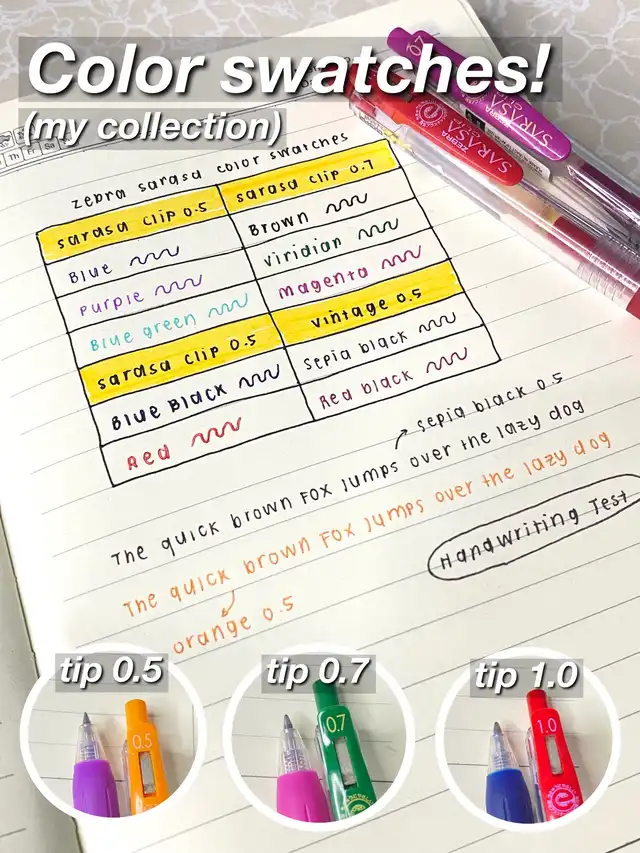 Color swatches!
(my collection)
Th Fr Sa
zebra sarasa color swatches
sarasa clip 0.5
Blue
Purple
Blue green
sarasa clip 0.5
Blue Black
Red
sarasa clip 0.7
Brown
Viridian
Magenta
vintage 0.5
Sepia black
Red black
Sepia black 0.5
The quick brown fox jumps over the lazy dog
The quick brown fox jumps over the lazy dog
orange 0.5
Handwriting Test
1.0
ZEBRA
SARASA
CLIP
ZEBRA
SARASA
CLIP
tip 0.5
0.5
tip 0.7
0.7
tip 1.0
1.0